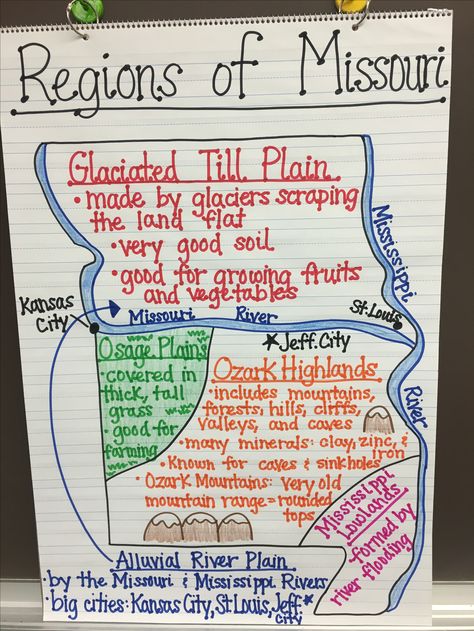 Regions of Missouri
Glaciated Till Plain
• made by glaciers scraping
the land flat
• very good soil
• good for growing fruits
and vegetables
Mississippi
River
Kansas
City
Missouri River
St. Louis
★ Jeff. City
Osage Plains
covered in
thick, tall
grass
• good for
farming
Ozark Highlands
• includes mountains,
forests, hills, cliffs,
valleys, and caves
• many minerals: clay, zinc, &
iron
• Known for caves & sinkholes
• Ozark Mountains: very old
mountain range = rounded
tops
Mississippi
lowlands
formed by
river flooding
Alluvial River Plain
• by the Missouri & Mississippi Rivers
• big cities: Kansas City, St. Louis, Jeff.
City